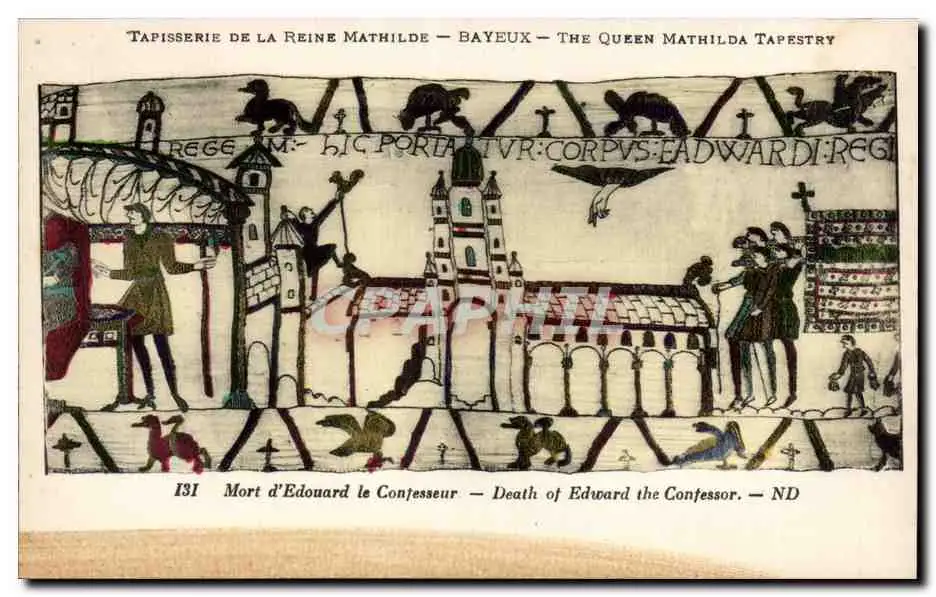 TAPISSERIE DE LA REINE MATHILDE — BAYEUX — THE QUEEN MATHILDA TAPESTRY
REGE M:- hIC PORTATVR: CORPVS: EADWARDI: REGI
CPAPHIL
131 Mort d'Edouard le Confesseur — Death of Edward the Confessor. — ND